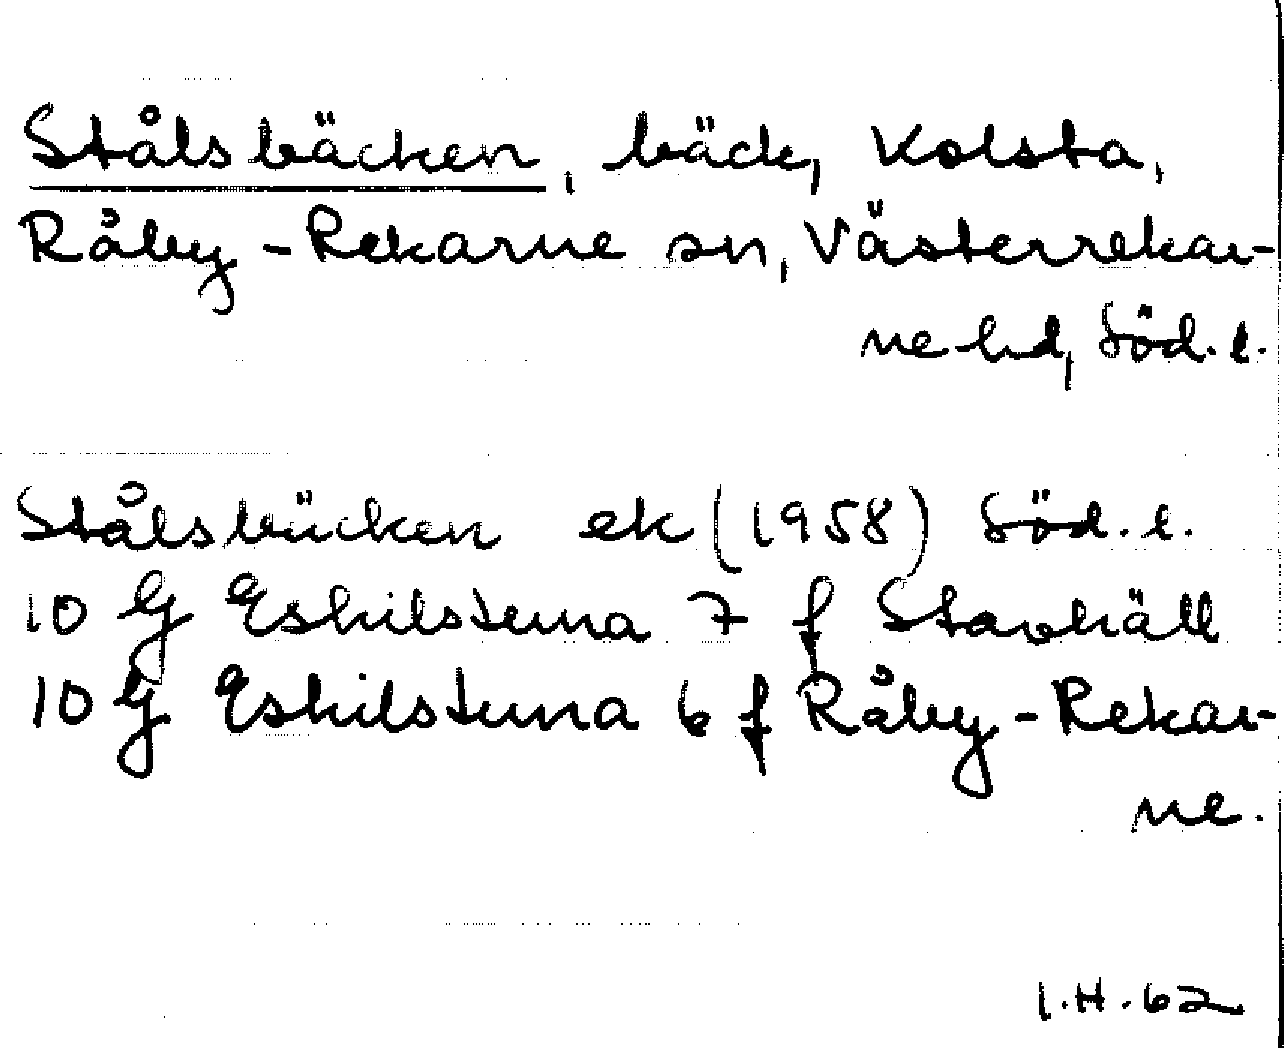 Stålsbäcken, bäck, Kolsta,
Råby-Rekarne sn, Västerrekar-
ne hd, Söd. l.
Stålsbäcken ek (1958) Söd. l.
10 G Eskilstuna 7 f Stavhäll
10 G Eskilstuna 6 f Råby-Rekar-
ne.
I.H. 62